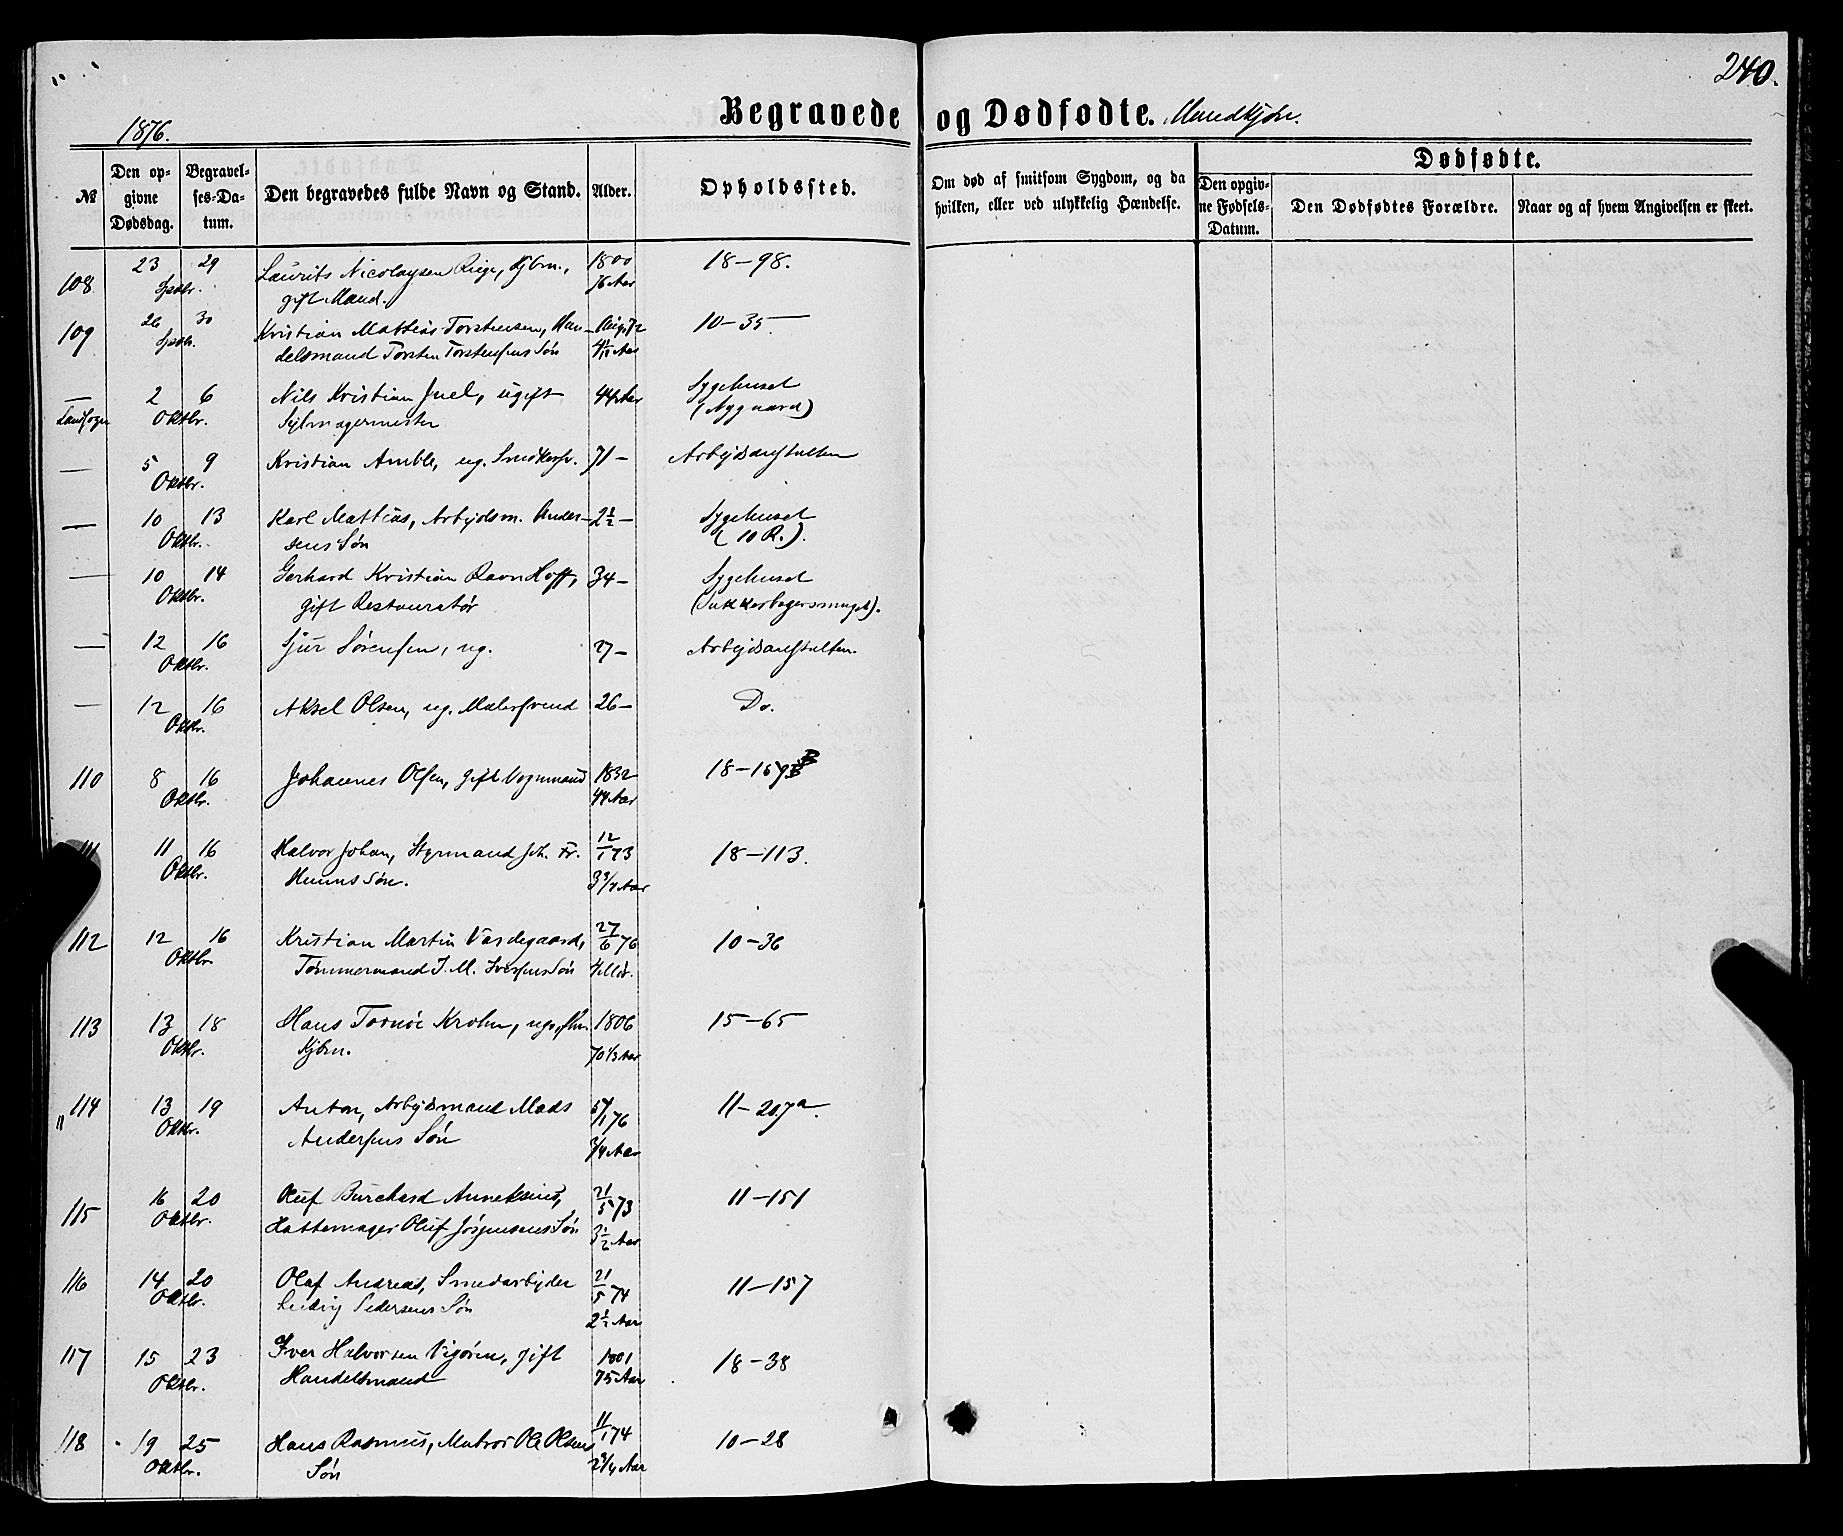 240.
1876.
Begravede og Dødfødte. Mandkjøn.
№
Den opgivne Dødsdag.
Begravelses-Datum.
Den begravedes fulde Navn og Stand.
Alder.
Opholdssted.
Om død af smitsom Sygdom, og da hvilken, eller ved ulykkelig Hændelse.
Dødfødte.
Den opgivne Fødsels-Datum.
Den Dødfødtes Forældre.
Naar og af hvem Angivelsen er skeet.
108 23 29 Laurits Nicolaysen Kjbm., 1800 18–98.
Septbr. gift Mand. 76 Aar
109 26 30 Kristian Mattias Torstensen, Han- Aug. 72 10–35
Septbr. delsmand Torsten Torstensens Søn Aar
— 2 6 Nils Kristian Juel, ugift 44 Aar Sygehuset
Landsogn Oktbr. (Nygaard)
— 5 9 Kristian Amble, ug. 71 – Arbejdsanstalten
Oktbr.
— 10 13 Karl Mattias, Arbejdsm. Ander- 2½ – Sygehuset
Oktbr. sens Søn (10 R.).
— 10 14 Gerhard Kristian Ravn Hoff, 34 – Sygehuset
Oktbr. gift Restauratør (Sukkerbagersmuget).
— 12 16 Sjur Sørensen, ug. 27 – Arbejdsanstalten.
Oktbr.
— 12 16 Aksel Olsen, ug. Malersvend 26 – Do.
Oktbr.
110 8 16 Johannes Olsen, gift Vognmand 1832 18–159 B
Oktbr. 44 Aar
111 11 16 Halvor Johan, Styrmand Joh. Fr. 12/1 73 18–113.
Oktbr. Søn. 3 3/4 Aar
112 12 16 Kristian Martin Vardegaard, 27/6 76 10–36
Oktbr. Tømmermand I. M. Iversens Søn 4 Md.
113 13 18 Hans Tornøe Krohn, 1806 15–65
Oktbr. Kjbm. 70 1/3 Aar
" 114 13 19 Anton, Arbejdsmand Mads /1 76 11–207a.
Oktbr. Andersens Søn 3/4 Aar
115 16 20 Oluf Burchard Annekinus, 21/5 73 11–151
Oktbr. Hattemager Oluf Jørgensens Søn 3½ Aar
116 14 20 Olaf Andreas, Smedarbejder 21/5 74 11–157
Oktbr. Ludvig Pedersens Søn 2½ Aar
117 15 23 Iver Halvorsen Vigøren, gift 1801 18–38
Oktbr. Handelsmand 75 Aar
118 19 25 Hans Rasmus, Matros Ole Olsens 11/1 74 10–28
Oktbr. Søn 2 3/4 Aar